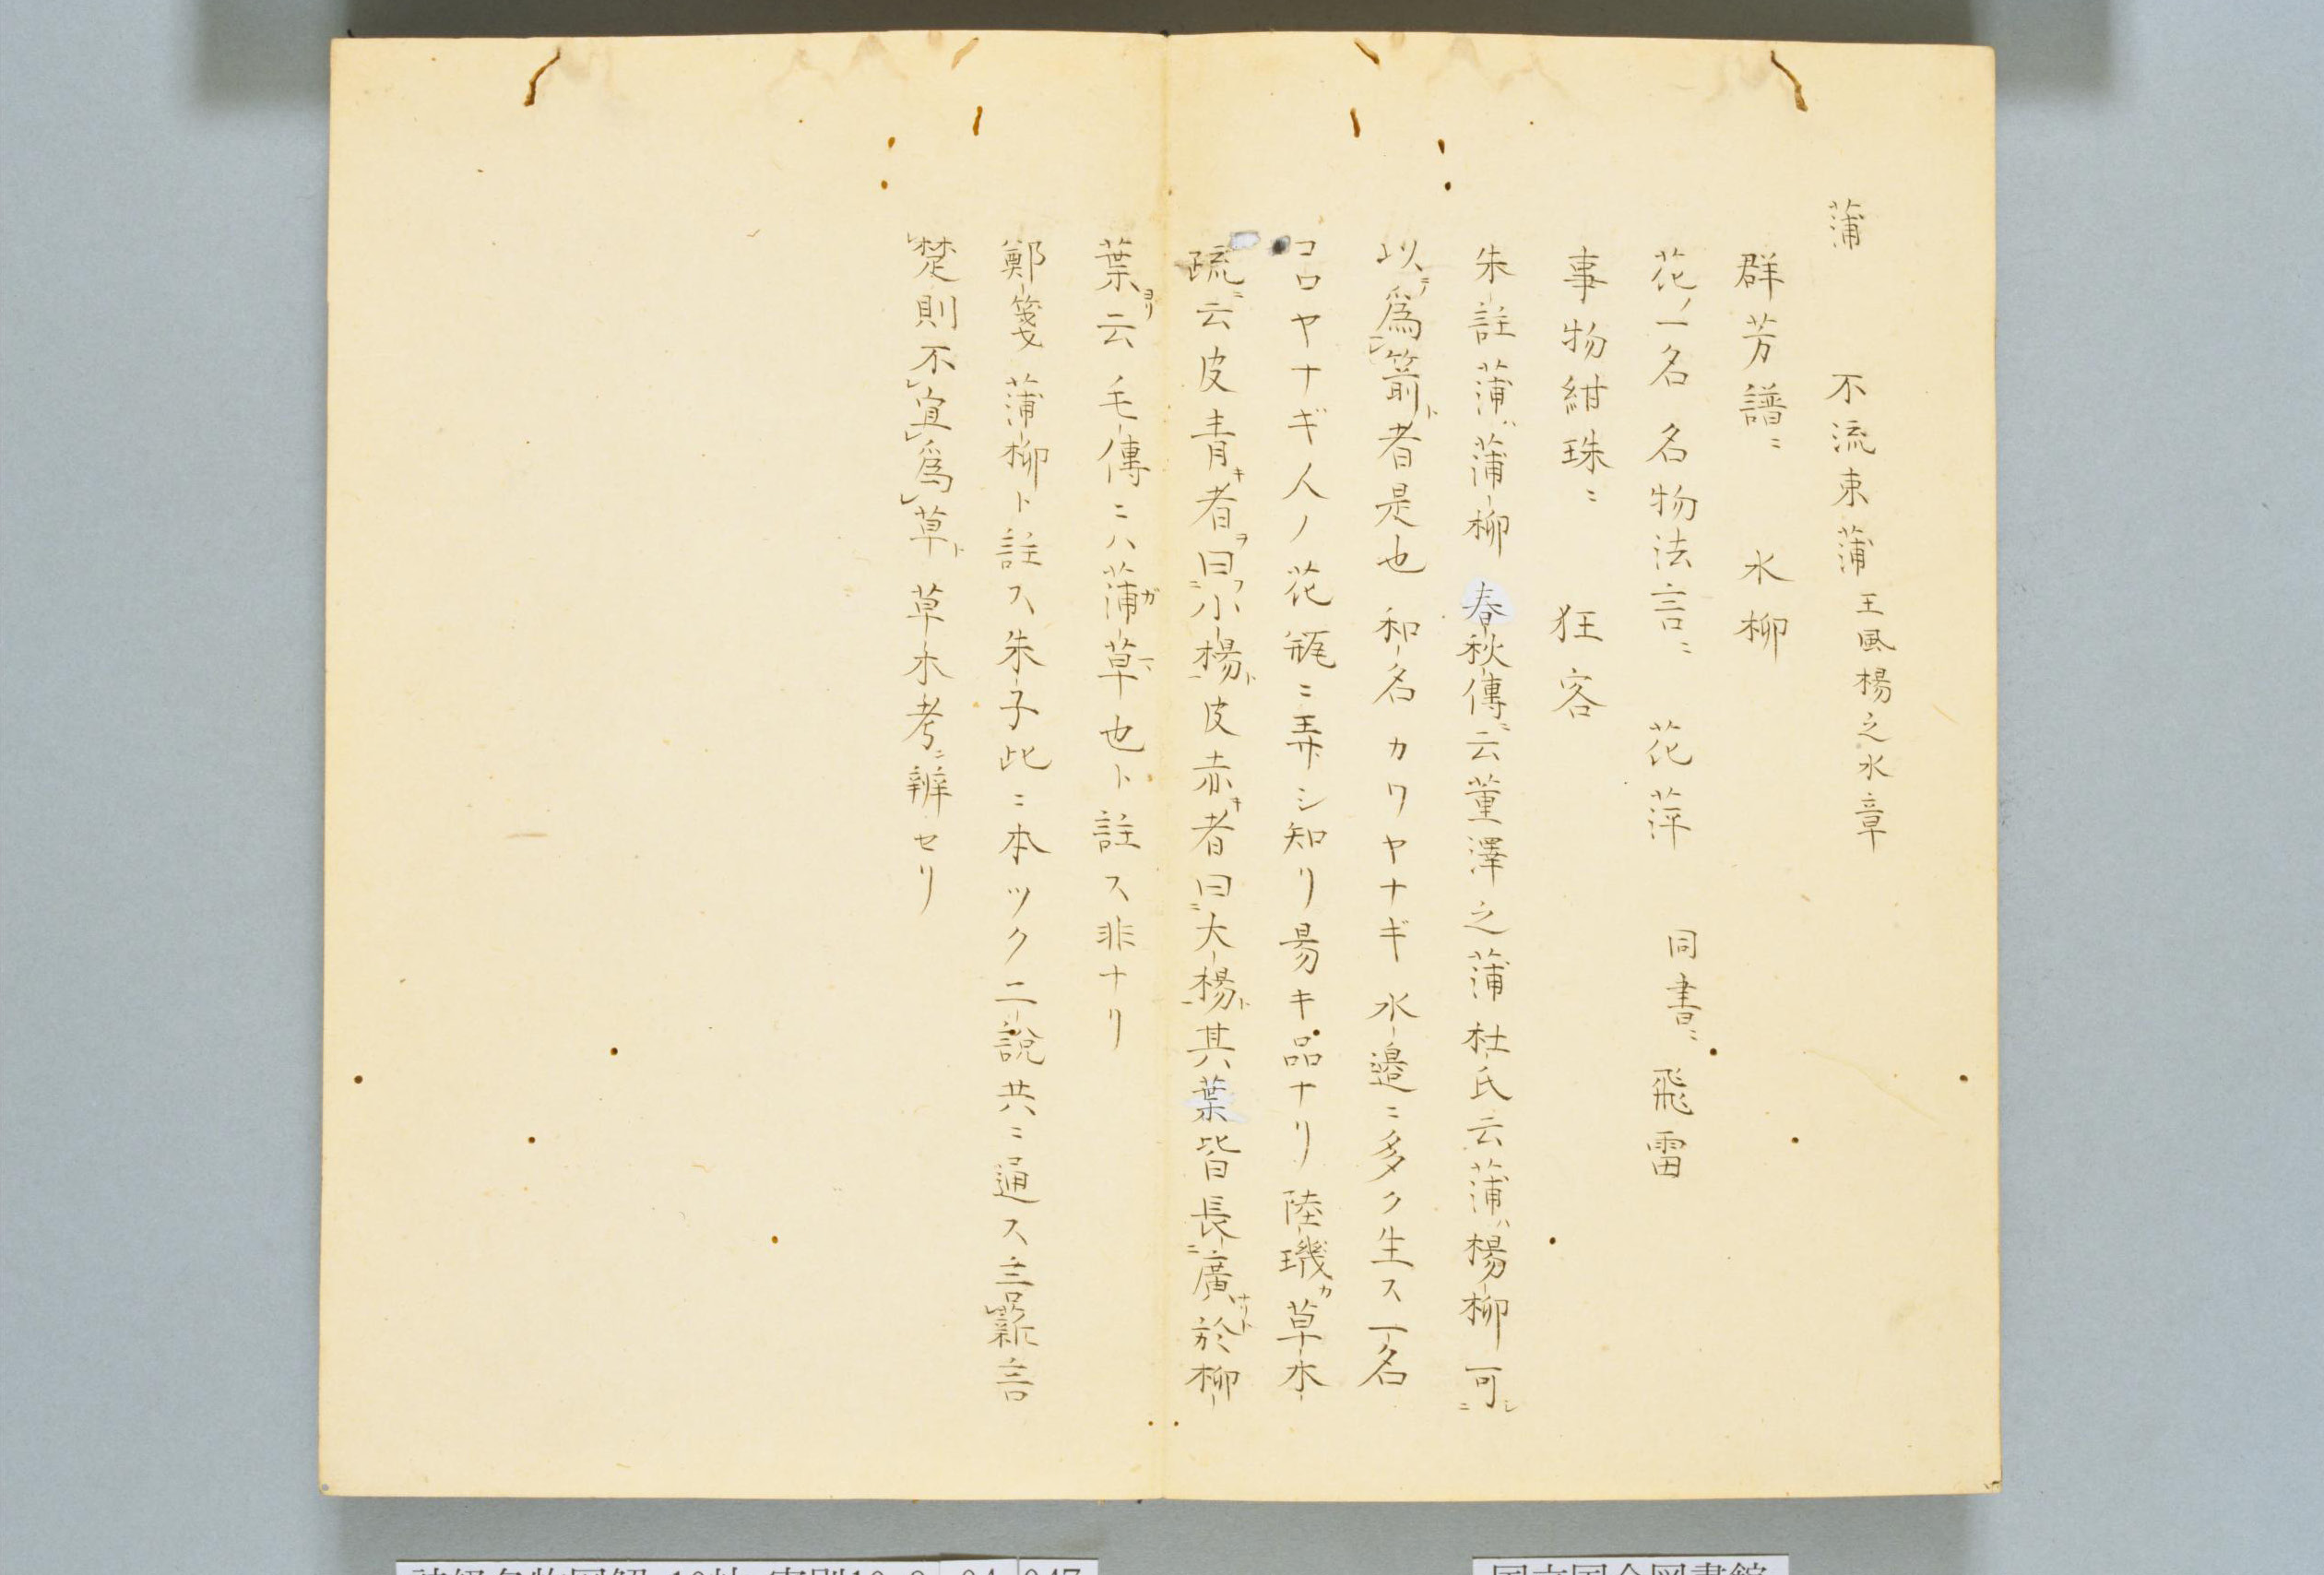 蒲　不流束蒲 王風楊之水章
群芳譜ニ　水柳
花ノ一名 名物法言ニ　花萍　同書ニ　飛雷
事物紺珠ニ　狂客
朱註蒲ハ蒲柳 春秋傳ニ云董澤之蒲杜氏云蒲ハ楊柳可シ
以テ爲箭ト者是也 和名カワヤナギ 水邉ニ多ク生ス一名
コロヤナギ人ノ花瓶ニ弄シ知リ易キ品ナリ陸璣カ草木
疏ニ云皮青キ者ヲ曰フ小楊ト皮赤キ者曰大楊ト其葉皆長廣ナリト於柳
葉ヨリ云毛傳ニハ蒲ガ草也ト註ス非ナリ
鄭箋蒲柳ト註ス朱子此ニ本ツク二說共ニ通ス言薪言
楚則不宜爲草ト 草木考ニ辨セリ